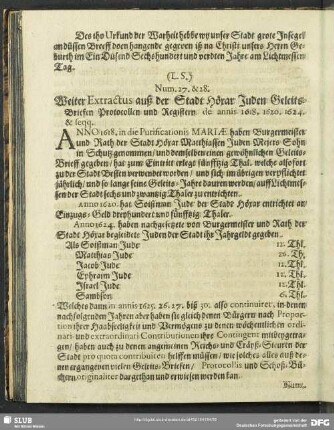 Des thu Urkund der Warheit hebbe wy unser Stadt grote Insegel
an düssen Breeff doen hangende gegeven iß na Christi unsers Herrn Ge-
burth im Ein Düsend Sechshundert und verdten Jahre am Lichtmessen
Tag.
(L. S.)
Num. 27. & 28.
Weiter Extractus auß der Stadt Höxar Juden Geleits-
Briefen Protocollen und Registern de annis 1618. 1620. 1624.
& seqq.
ANNO 1618, in die Purificationis MARIÆ haben Burgermeister
und Rath der Stadt Höxar Matthiassen Juden Mejers Sohn
in Schutz genommen / und demselben einen gewöhnlichen Geleits-
Brieff gegeben / hat zum Eintritt erlegt fünfftzig Thal. welche alsofort
zu der Stadt Besten verwendet worden / und sich im übrigen verpflichtet
jährlich / und so lange seine Geleits-Jahre dauren werden / auff Lichtmes-
sen der Stadt sechs und zwantzig Thaler zu entrichten.
Anno 1620. hat Soistman Jude der Stadt Höxar entrichtet an
Einzugs-Geld drephundert und fünfftzig Thaler.
Anno 1624. haben nachgesetzte von Burgermeister und Rath der
Stadt Höxar begleidete Juden der Stadt ihr Jahrgeldt gegeben.
Als Soistman Jude 12. Thl.
Matthias Jude 26. Th.
Jacob Jude 12. Thl.
Ephraim Jude 12. Thl.
Israel Jude 12. Thl.
Sambson 6. Thl.
Welches dann in annis 1625. 26. 27. biß 30. also continuiret, in denen
nachfolgenden Jahren aber haben sie gleich denen Bürgern nach Propor-
tion ihrer Haabseligkeit und Vermögens zu denen wöchentlichen ordinari-
und extraordinari Contributionen ihre Contingent mitbeygetra-
gen / haben auch zu denen angesinten Reichs- und Cräyß-Steuren der
Stadt pro quota contribuiren helffen müssen / wie solches alles auß de-
nen ergangenen vielen Geleits-Brieffen / Protocollis und Schoß-Bü-
chern originaliter dargethan und erwiesen werden kan.
SLUB
Wir führen Wissen.
http://digital.slub-dresden.de/
gefördert von der
Deutschen Forschungsgemeinschaft